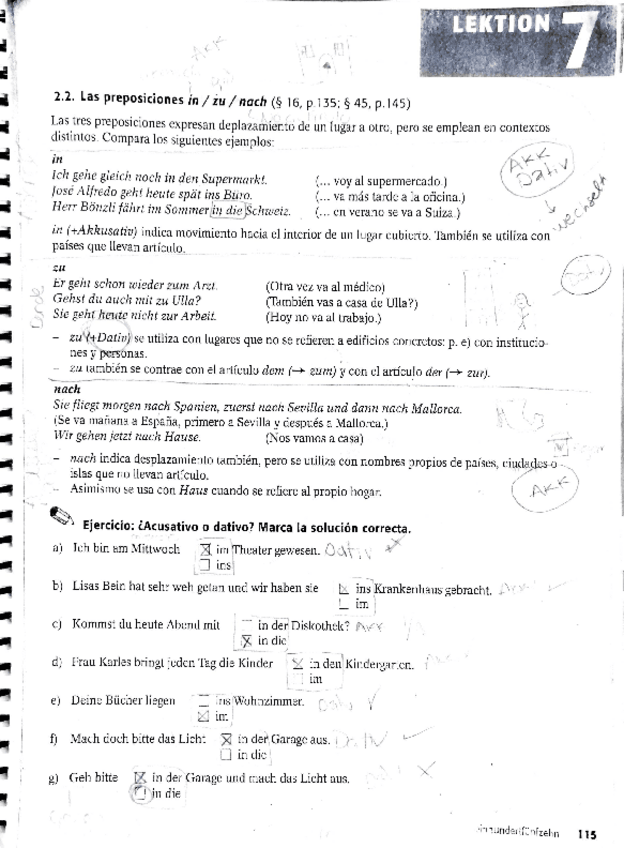 LEKTION 7
AKK
2.2. Las preposiciones in / zu / nach (§ 16, p.135; § 45, p.145)
Las tres preposiciones expresan deplazamiento de un lugar a otro, pero se emplean en contextos
distintos. Compara los siguientes ejemplos:
in
Ich gehe gleich noch in den Supermarkt. (... voy al supermercado.)
José Alfredo geht heute spät ins Büro. (... va más tarde a la oficina.)
Herr Bönzli fährt im Sommer in die Schweiz. (... en verano se va a Suiza.)
AKK
Dativ
↓
wechseln
in (+Akkusativ) indica movimiento hacia el interior de un lugar cubierto. También se utiliza con
países que llevan artículo.
zu
Er geht schon wieder zum Arzt. (Otra vez va al médico)
Gehst du auch mit zu Ulla? (También vas a casa de Ulla?)
Sie geht heute nicht zur Arbeit. (Hoy no va al trabajo.)
Dativ
– zu (+Dativ) se utiliza con lugares que no se refieren a edificios concretos: p. e) con institucio-
nes y personas.
– zu también se contrae con el artículo dem (→ zum) y con el artículo der (→ zur).
nach
Sie fliegt morgen nach Spanien, zuerst nach Sevilla und dann nach Mallorca.
(Se va mañana a España, primero a Sevilla y después a Mallorca.)
Wir gehen jetzt nach Hause. (Nos vamos a casa)
– nach indica desplazamiento también, pero se utiliza con nombres propios de países, ciudades o
islas que no llevan artículo.
– Asimismo se usa con Haus cuando se refiere al propio hogar.
AKK
Ejercicio: ¿Acusativo o dativo? Marca la solución correcta.
a) Ich bin am Mittwoch im Theater gewesen. Dativ
ins
b) Lisas Bein hat sehr weh getan und wir haben sie ins Krankenhaus gebracht.
im
c) Kommst du heute Abend mit in der Diskothek? AKK
in die
d) Frau Karles bringt jeden Tag die Kinder in den Kindergarten.
im
e) Deine Bücher liegen ins Wohnzimmer. Dativ
im
f) Mach doch bitte das Licht in der Garage aus. Dativ
in die
g) Geh bitte in der Garage und mach das Licht aus.
in die
115